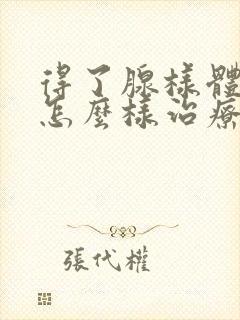 得了腺樣體
怎麼樣治療
張代權